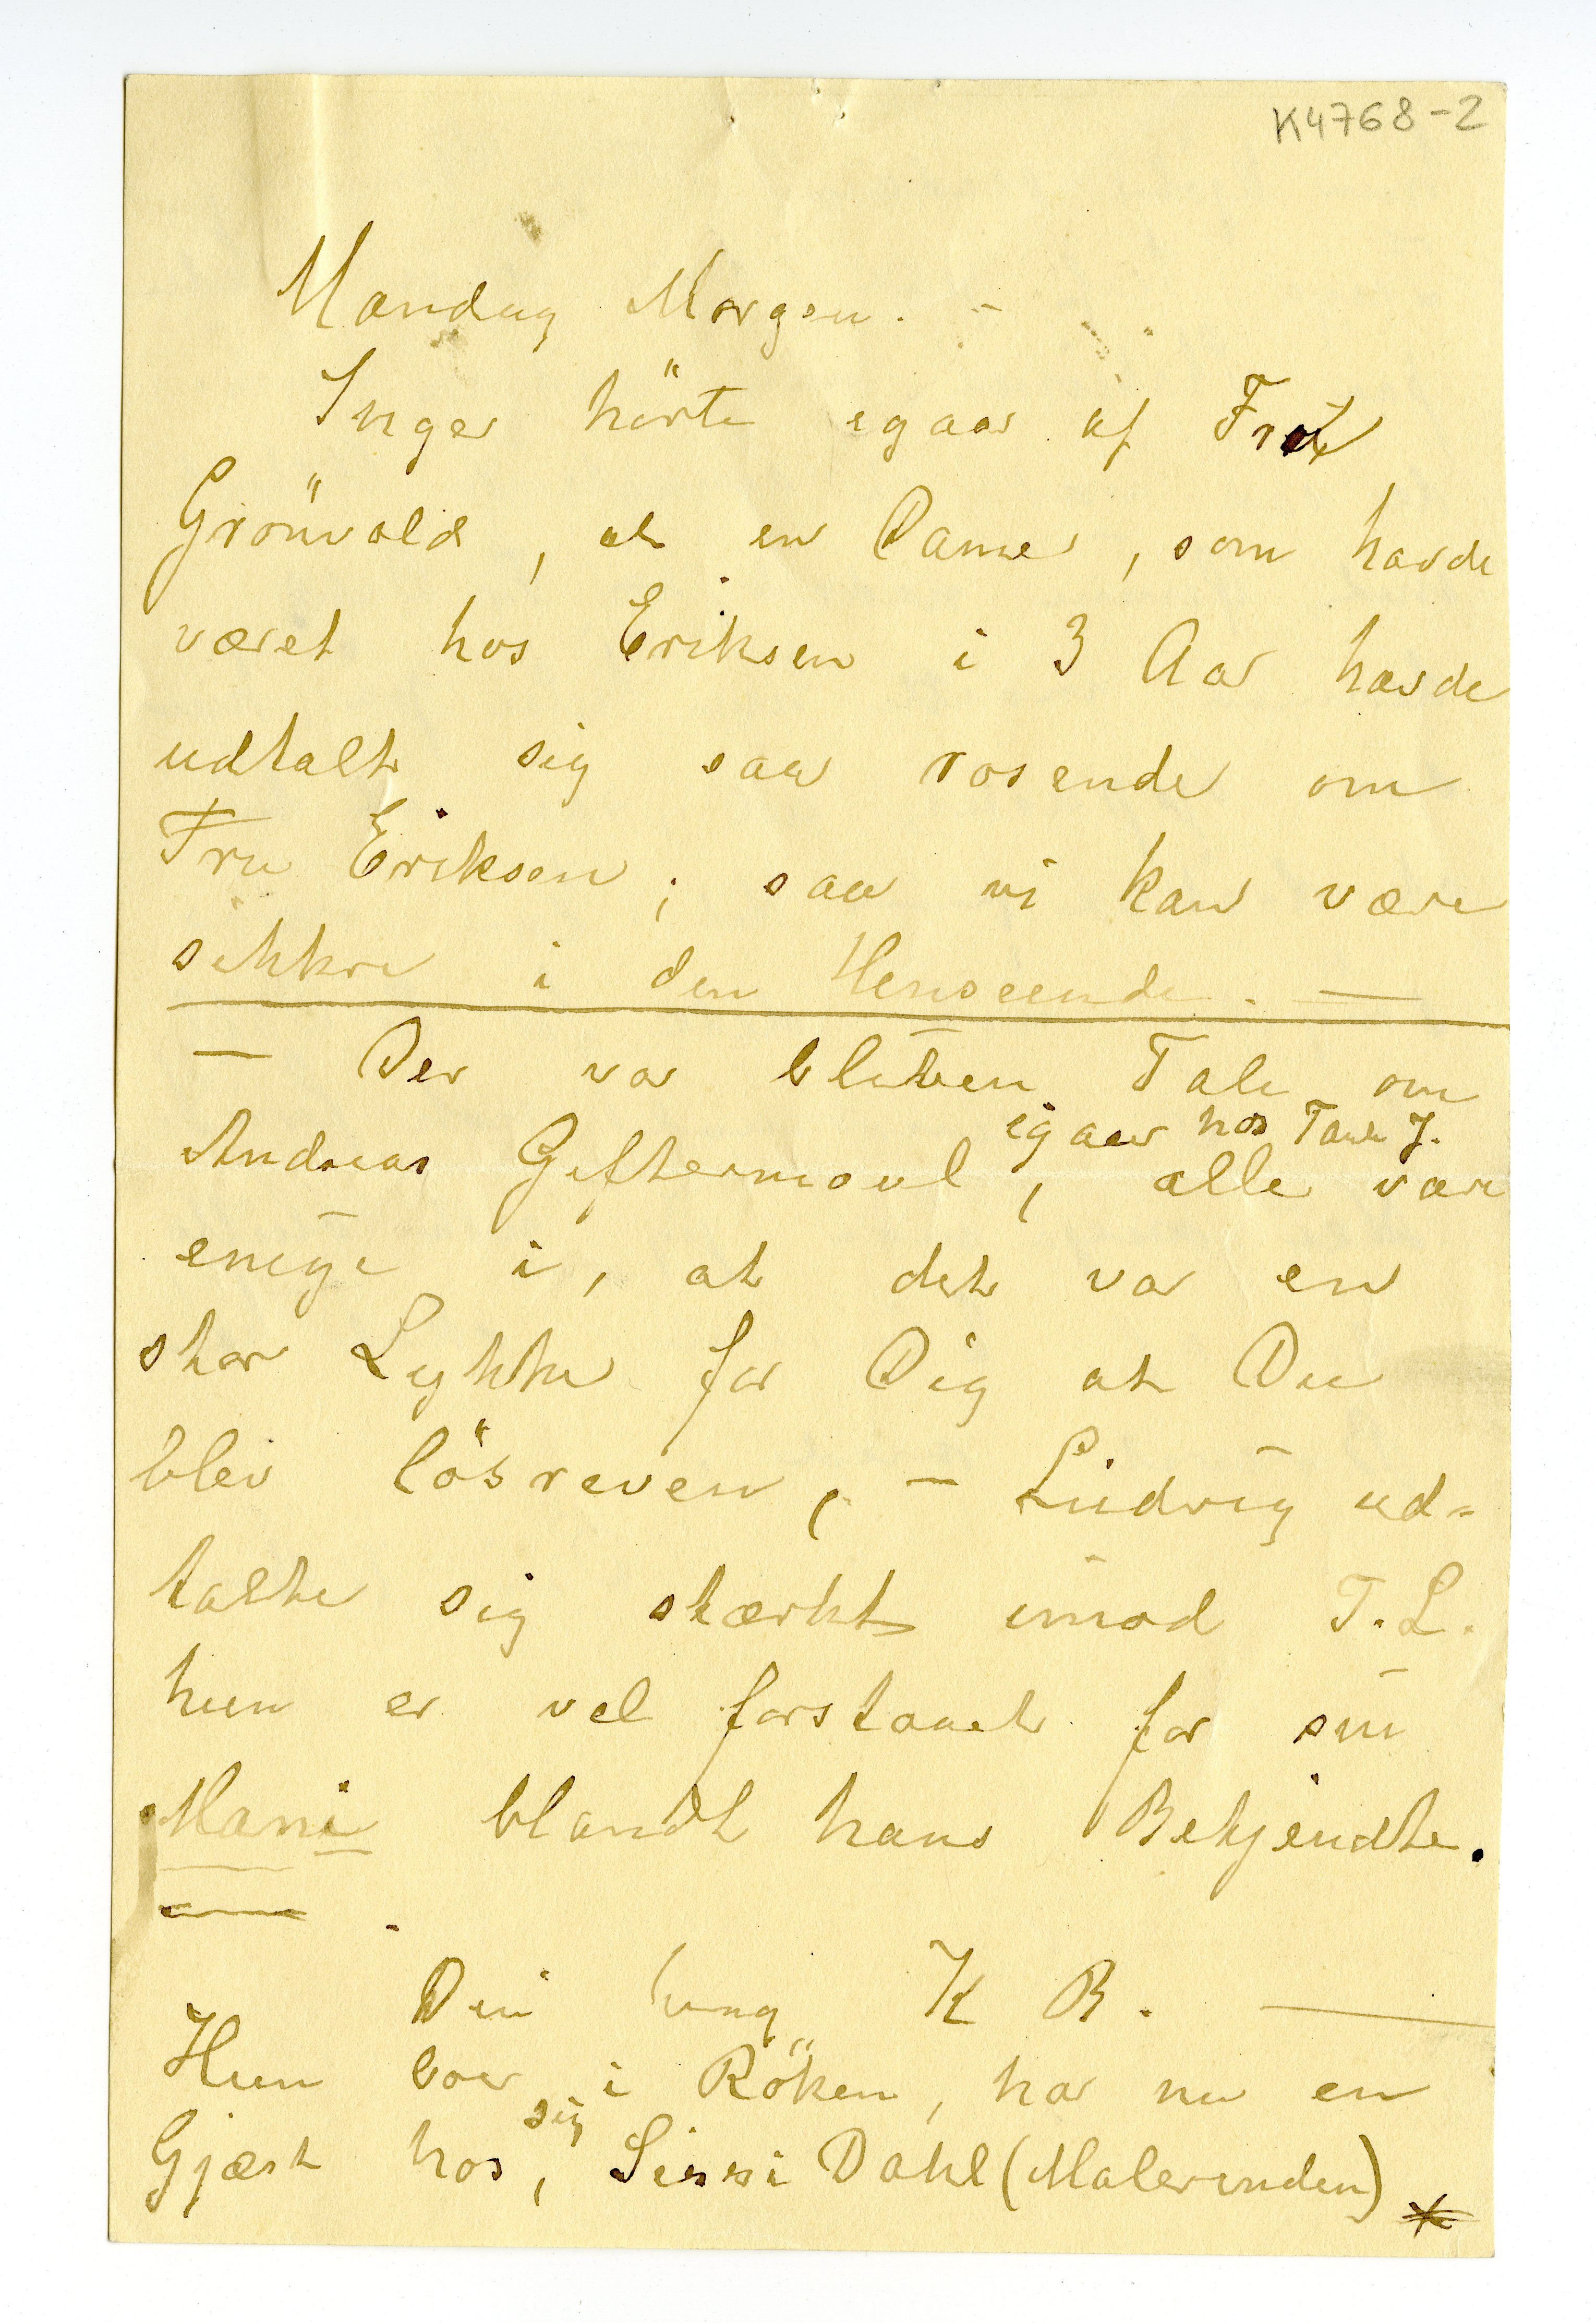 K4768-2
Mandag Morgen. –
Inger hörte igaar af Frk
Grönvold, at en Dame, som havde
været hos Eriksen i 3 Aar havde
udtalt sig saa rosende om
Fru Eriksen; saa vi kan være
sikkre i den Henseende. —
– Der var bleven Tale om
igaar hos Tante J.
Andreas Giftermaal, alle vare
enige i, at det var en
stor Lykke for Dig at Du
blev lösreven, – Ludvig ud-
talte sig stærkt imod T.L.
hun er vel forstaaet for sin
Mani blandt hans Bekjendte.
Din heng K B. —
Hun boer i Röken, har nu en
sig
Gjæst hos, Sissi Dahl (Malerinden)